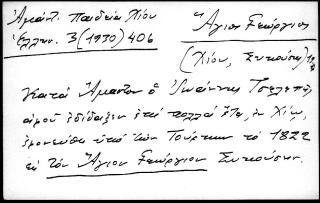 Ἀμάντ. Παιδεία Χίου
Ἑλλην. 3 (1930) 406
Ἅγιος Γεώργιος
(Χίου, Συκούσης)
Κατὰ Ἄμαντον ὁ Ἰωάννης
ἐδίδαξεν ἐπὶ πολλὰ ἔτη ἐν Χίῳ,
ἐφονεύθη ὑπὸ τῶν Τούρκων τὸ 1822
εἰς τὸν Ἅγιον Γεώργιον Συκούσην.